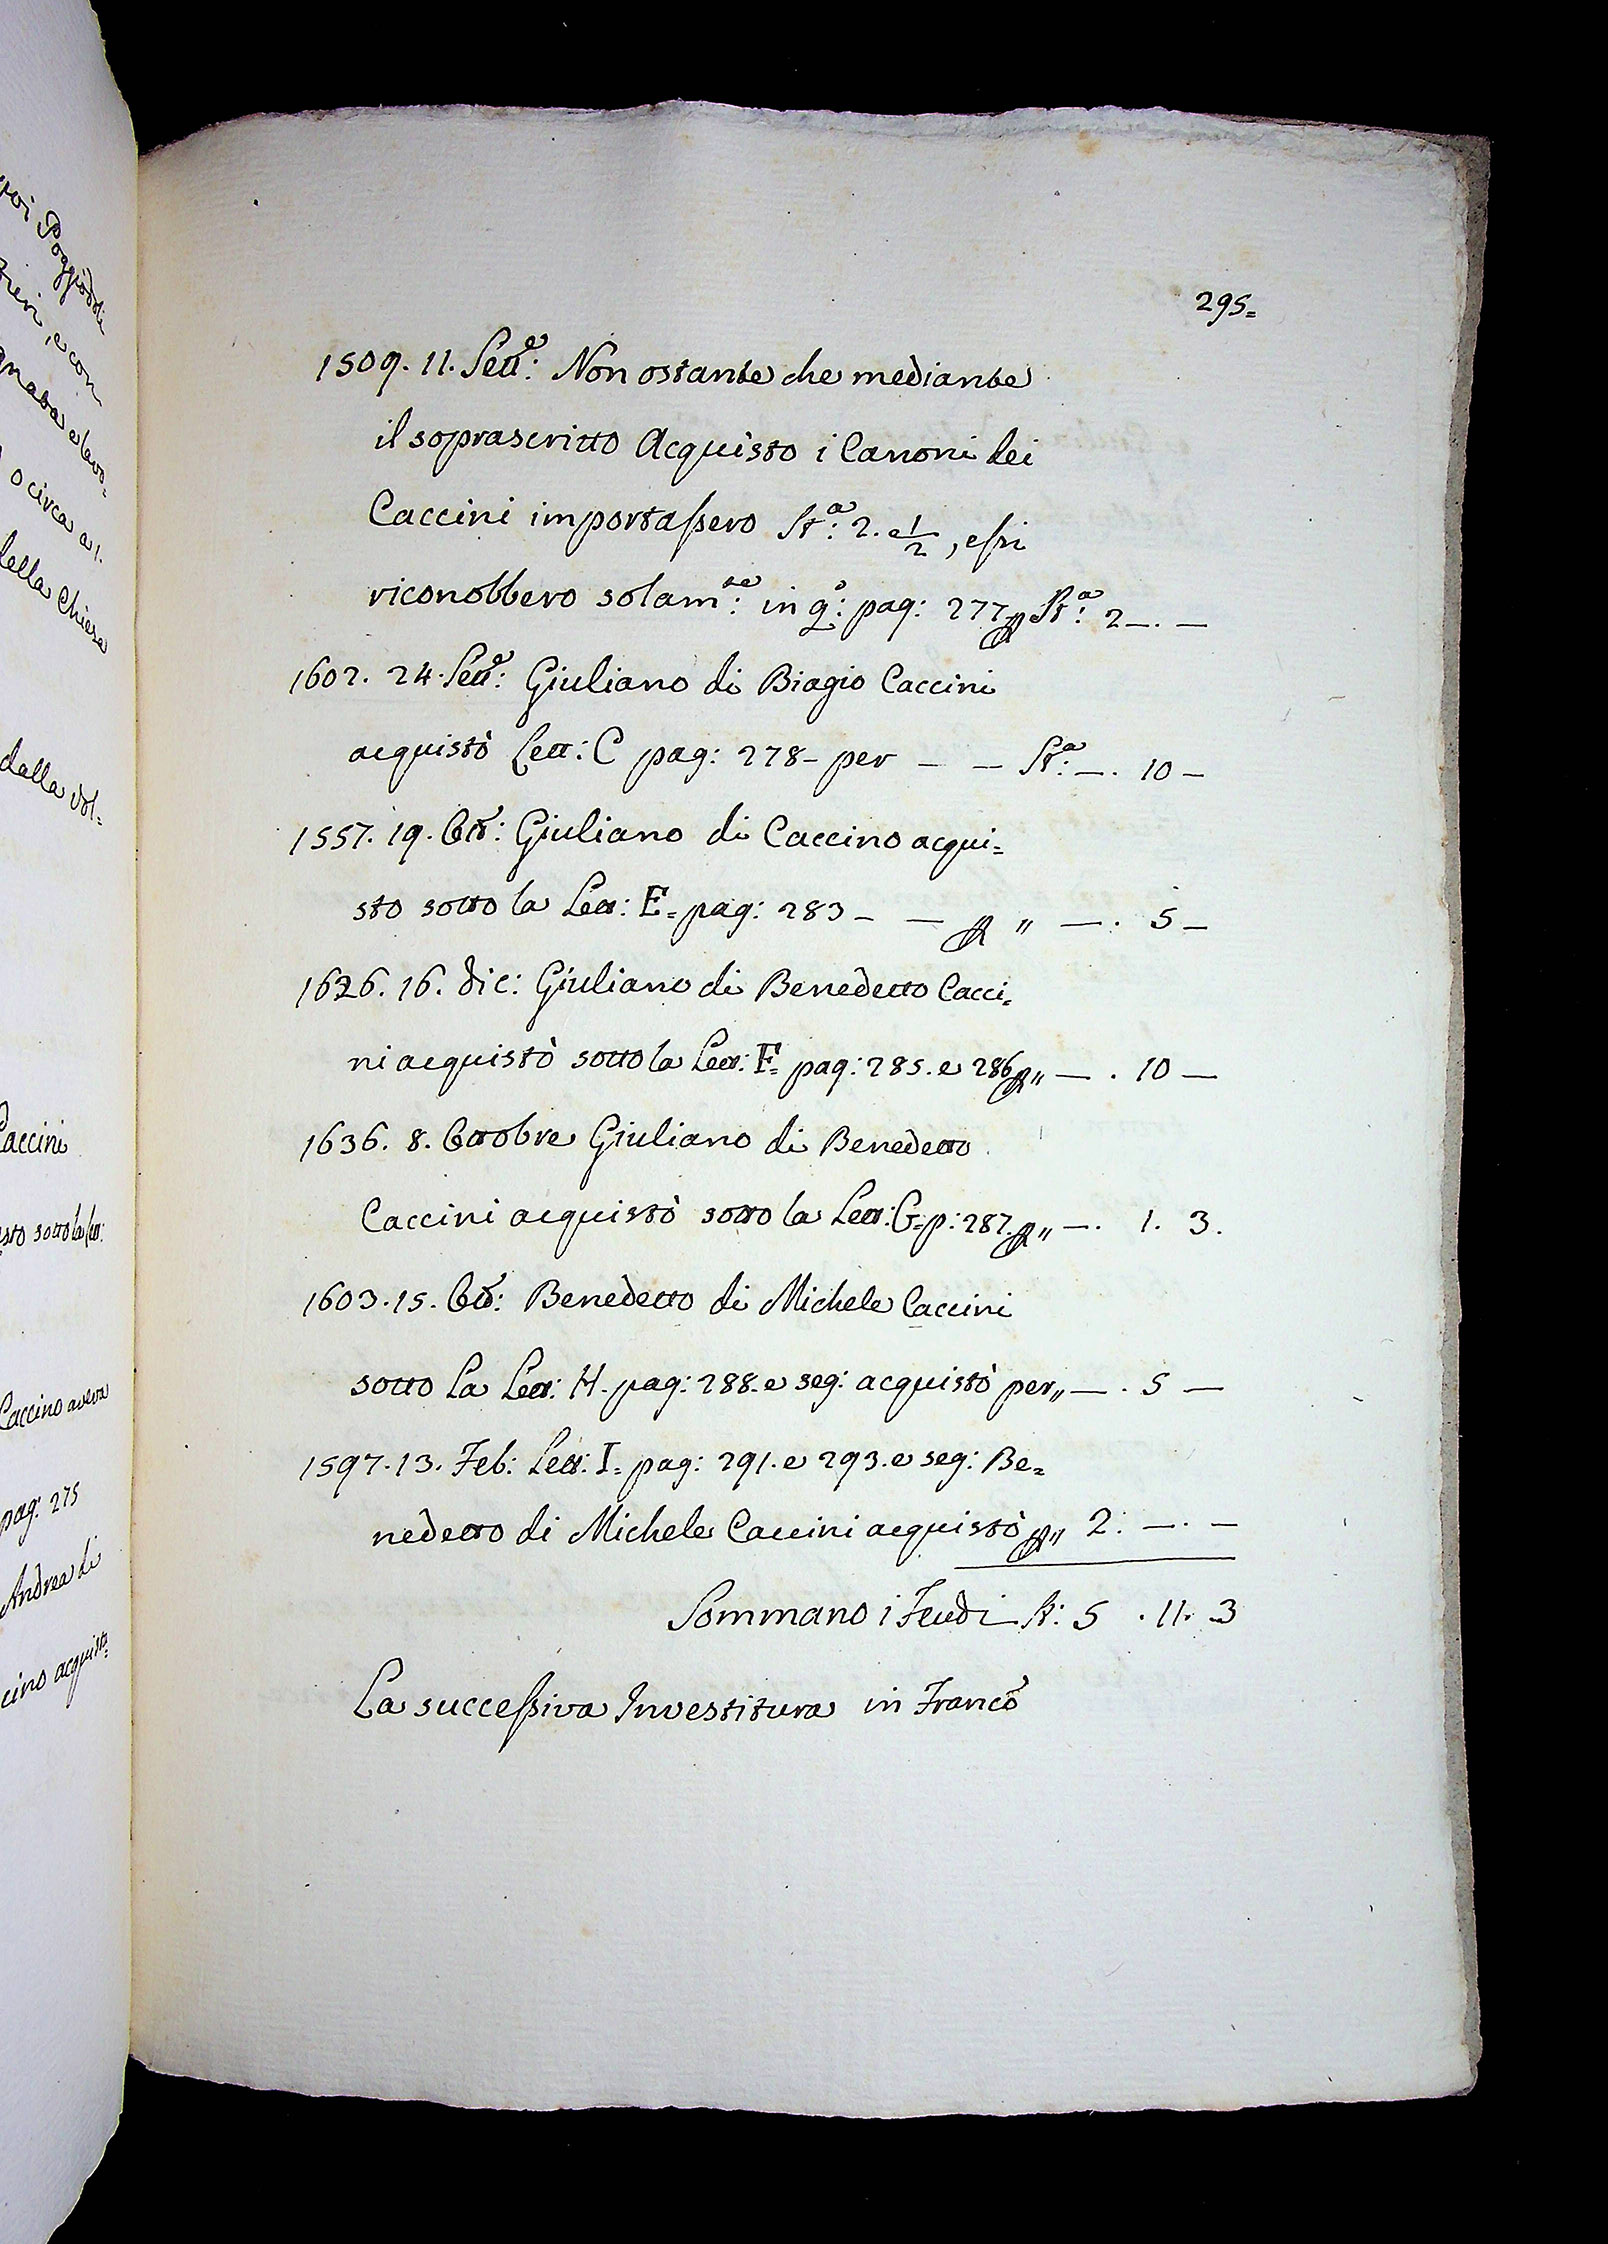 voi Poggiòdi
, e con
gnata e lavo-
o circa a 1.
della Chiesa
dalla vol-
Caccini
sto sotto la Lett:
Caccino aveva
pag: 275
Andrea di
cino acquistò
295=
1509. 11. Sett.e: Non ostante che mediante
il soprascritto Acquisto i Canoni dei
Caccini importassero St.a: 2. e 1/2, essi
riconobbero solam.te: in q.o: pag: 277 p St.a: 2 —. —
1602. 24. Sett.e: Giuliano di Biagio Caccini
acquistò Lett: C pag: 278 – per — — St.a: —. 10 —
1557. 19. Ott.e: Giuliano di Caccino acqui=
sto sotto la Lett: E= pag: 283 – — p " —. 5 —
1626. 16. Dic: Giuliano di Benedetto Cacci=
ni acquistò sotto la Lett: F= pag: 285. e 286 p " — . 10 —
1636. 8. Ottobre Giuliano di Benedetto
Caccini acquistò sotto la Lett: G= p: 287. p " —. 1. 3.
1603. 15. Ott.e: Benedetto di Michele Caccini
sotto la Lett: H. pag: 288. e seg: acquistò per " — . 5 —
1597. 13. Feb: Lett: I= pag: 291. e 293. e seg: Be=
nedetto di Michele Caccini acquistò p " 2. —. —
Sommano i Feudi St: 5 . 11. 3
La successiva Investitura in Franco